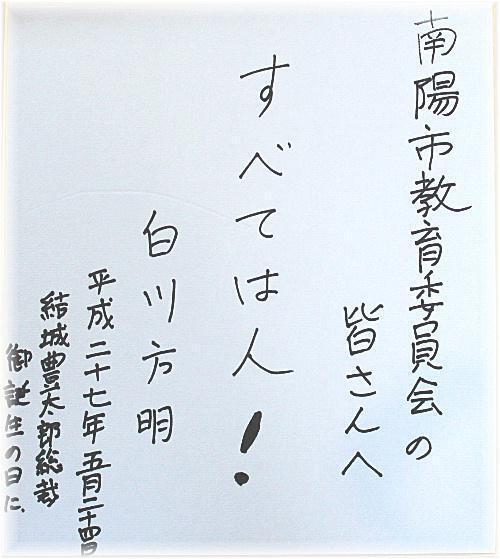 南陽市教育委員会の
皆さんへ
すべては人!
白川方明
平成二十七年五月二十四日
結城豊太郎総裁
御誕生の日に、